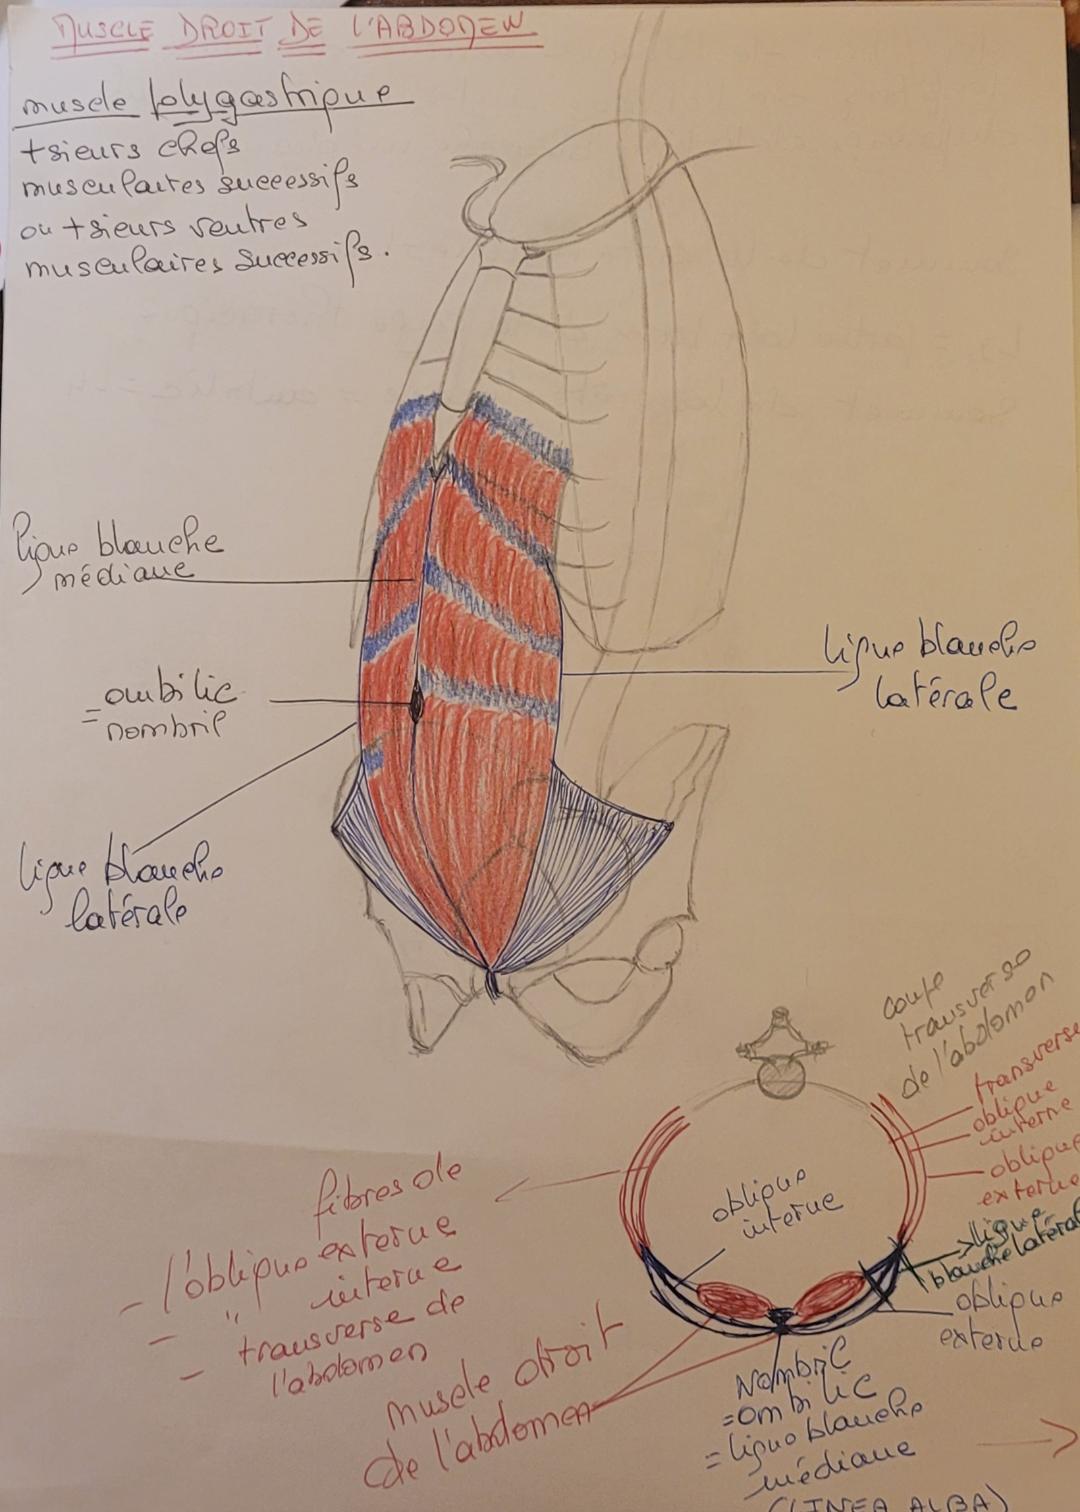 MUSCLE DROIT DE L'ABDOMEN
muscle polygastrique
+sieurs chefs
musculaires successifs
ou +sieurs ventres
musculaires successifs.
ligne blanche
médiane
ligne blanche
latérale
ombilic
= nombril
ligne blanche
latérale
coupe
transverse
de l'abdomen
transverse
oblique
interne
oblique
externe
fibres de
- l'oblique externe
- " interne
- transverse de
l'abdomen
oblique
interne
ligne
blanche latéral
oblique
externe
muscle droit
de l'abdomen
Nombril
= ombilic
= ligne blanche
médiane
(LINEA ALBA)